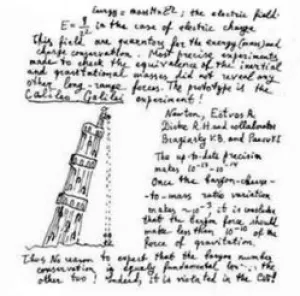 Energy = mass × c²; the electric field
E = g/r² in the case of electric charge
This field are guarantors for the energy (mass) and
charge conservation. Most precise experiments
made to check the equivalence of the inertial
and gravitational masses did not reveal any
other long-range forces. The prototype is the
Galileo Galilei experiment!
Newton, Eötvos R.
Dicke R.H. and collaborators
Braginsky V.B. and Panov V.I.
The up-to-date precision
makes 10⁻¹³ - 10⁻¹⁴
Once the baryon-charge-
-to-mass ratio variation
makes ~10⁻³, it is
that the baryon force should
make less than 10⁻¹⁰ of the
force of gravitation.
Thus No reason to expect that the baryon number
conservation is equally fundamental
other two! Indeed, it is violated in the